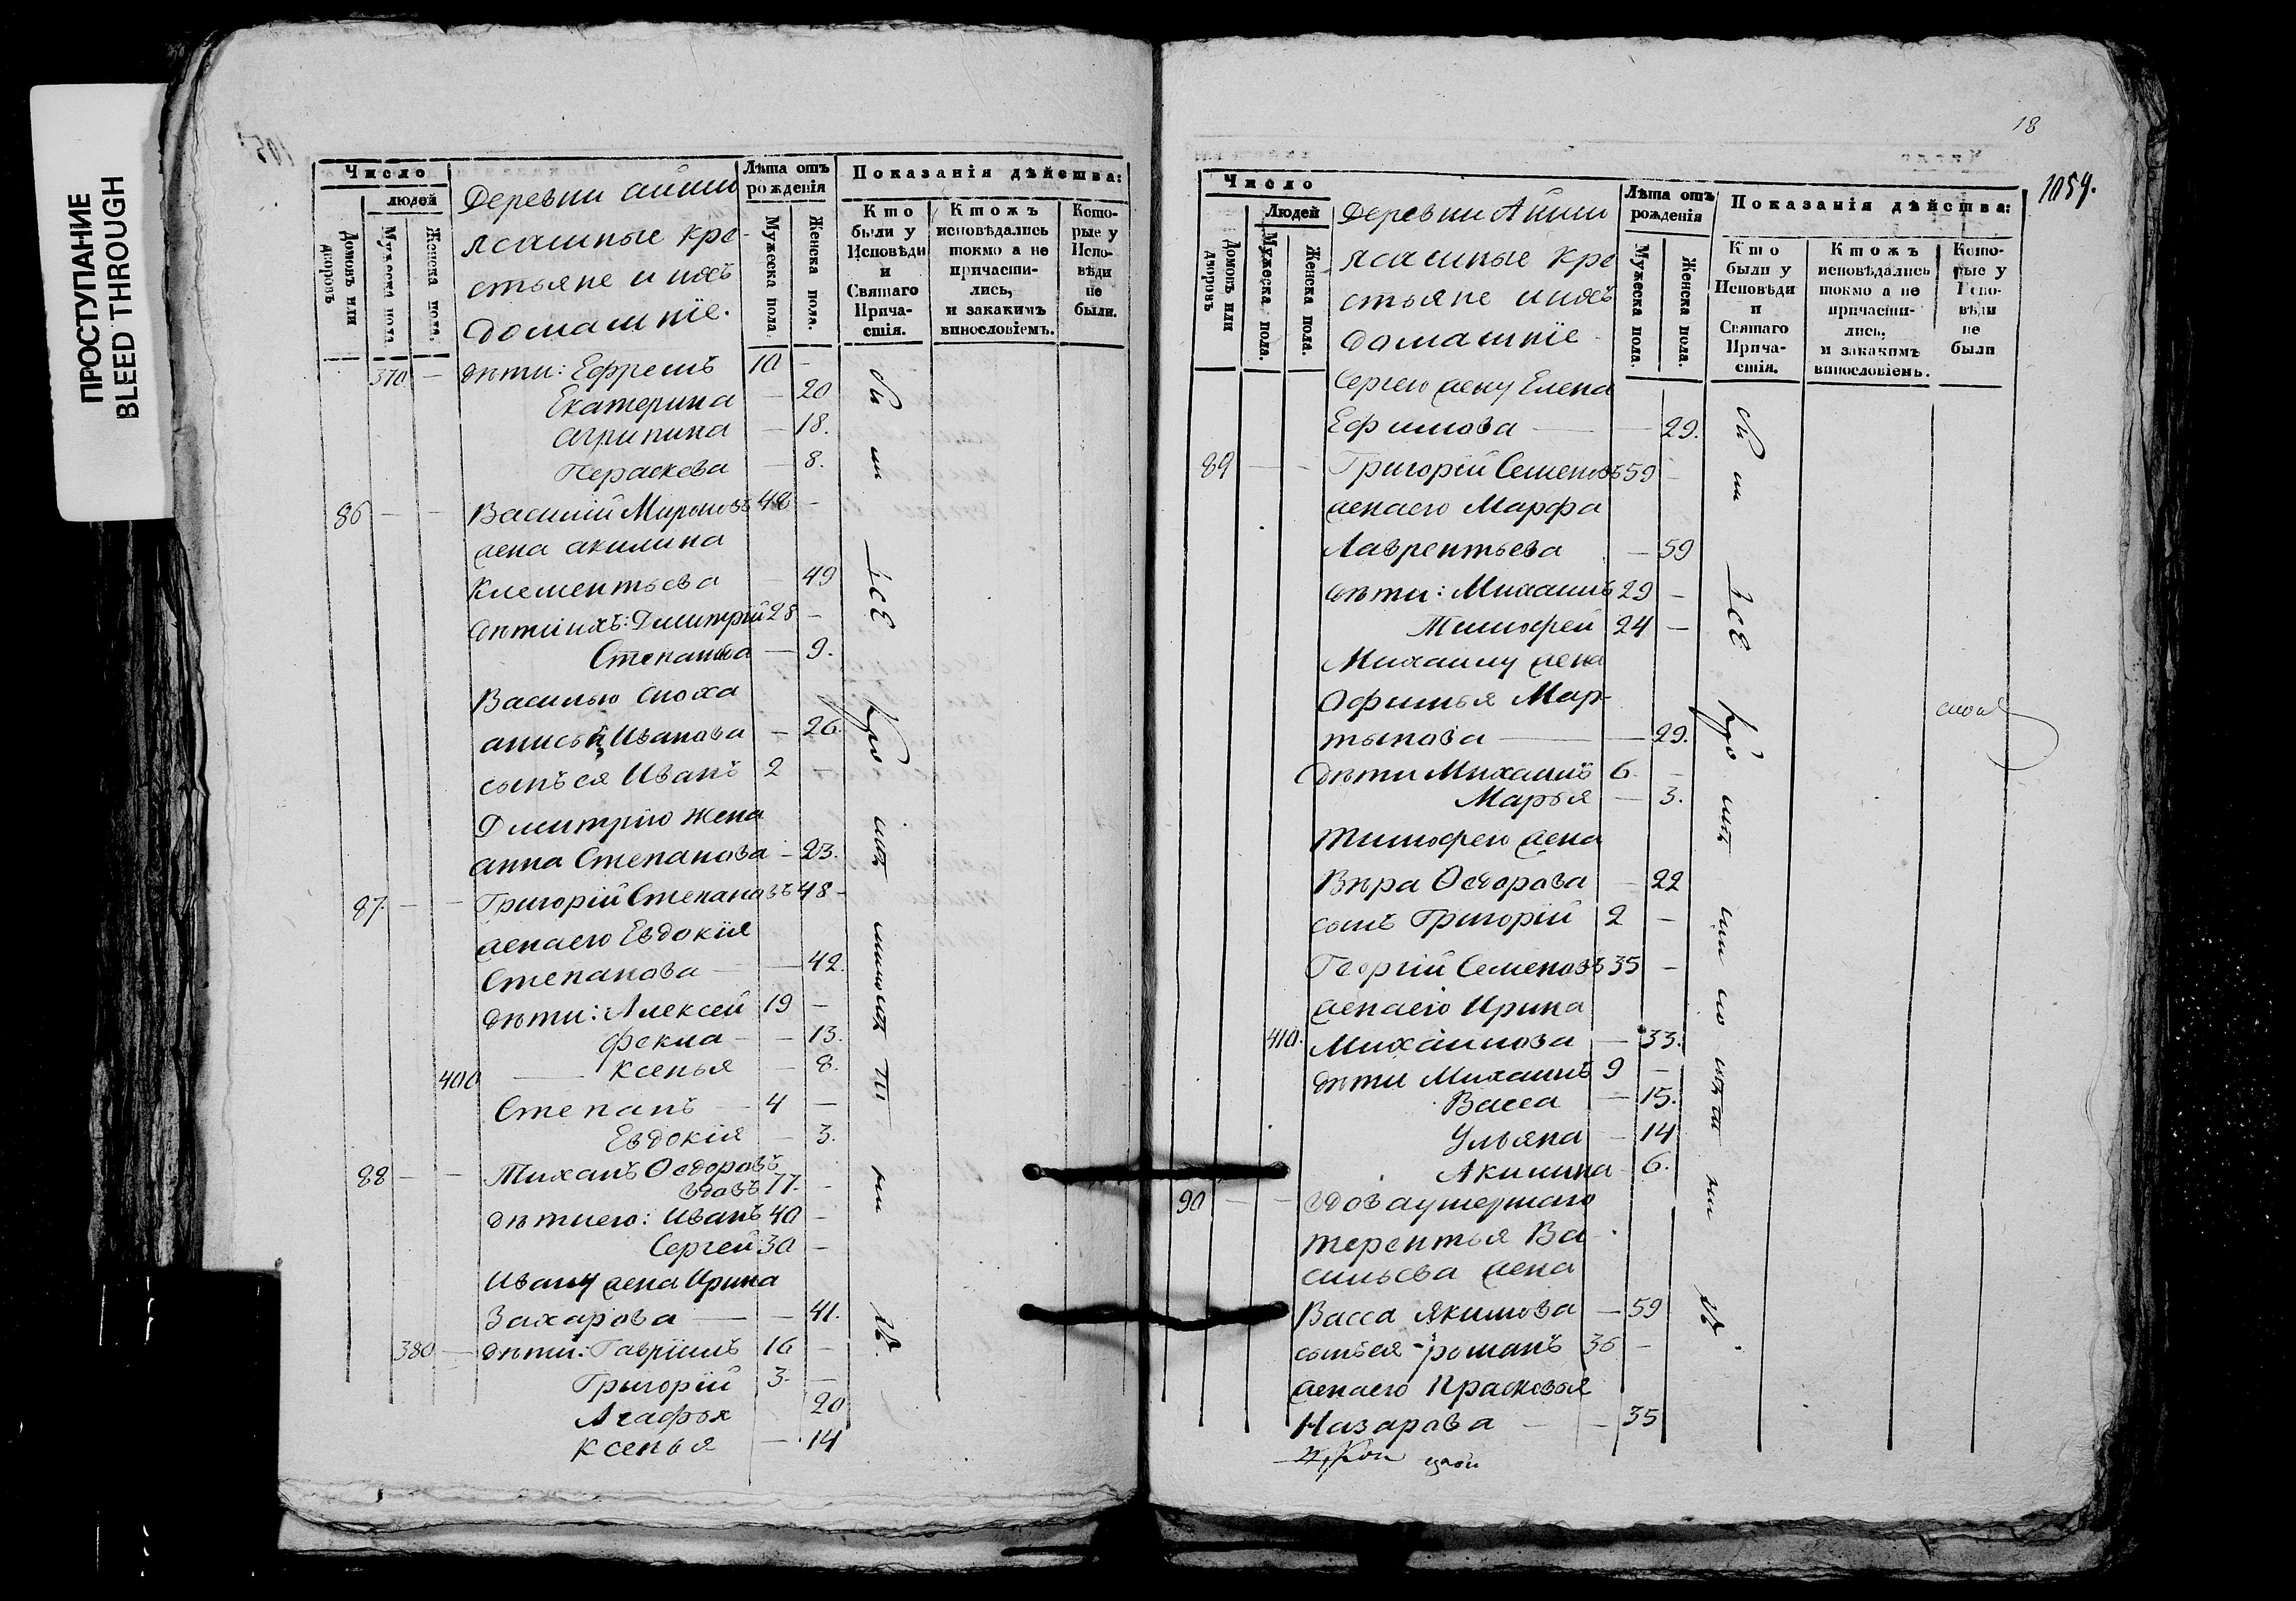 ПРОСТУПАНИЕ
BLEED THROUGH
Число
людей
Домовъ или дворовъ
Мужеска пола
Женска пола.
Деревни айши
ясашные кре-
стьяне и ихъ
домашніе.
Лѣта отъ рожденія
Мужеска пола.
Женска пола.
Показанія дѣйства:
Кто были у Исповѣди и Святаго Прича-стія.
Ктожъ исповѣдались токмо а не причасти-лись, и закакимъ винословіемъ.
Кото-рые у Испо-вѣди не были.
370 — дѣти: Ефремъ 10 —
Екатерина — 20
агрипина — 18.
Параскева — 8.
86 — — Василій Мироновъ 48 —
жена акилина
Клементьева — 49
дѣти ихъ: Дмитрій 28 —
Степанида — 9.
Василью сноха
анисья Иванова — 26.
сынъ ея Иванъ 2 —
Дмитрію жена
анна Степанова — 23.
87. — — Григорій Степановъ 48 —
жена его Евдокія
Степанова — 42.
дѣти: Алексей 19 —
Фекла — 13.
400 — ксенья — 8.
Степанъ — 4 —
Евдокія — 3.
88 — — Тиханъ Ѳедоровъ
вдовъ 77. —
дѣти его: Иванъ 40 —
Сергей 30 —
Ивану жена Ирина
Захарова — 41.
380 — дѣти: Гавріилъ 16 —
Григорій 3. —
Агафья 20
ксенья — 14
18
1054.
Число
Людей
Домовъ или дворовъ
Мужеска пола.
Женска пола.
Деревни Айши
ясашные кре
стьяне и ихъ
домашніе
Лѣта отъ рожденія
Мужеска пола.
Женска пола.
Показанія дѣйства:
Кто были у Исповѣди и Святаго Прича-стія.
Ктожъ исповѣдались токмо а не причасти-лись, и закакимъ винословіемъ.
Кото-рые у Испо-вѣди не были
Сергею жену Елена
Ефимова — — 29.
89 — — Григорій Семеновъ 59 —
жена его Марфа
Лаврентьева — 59
дѣти: Михаилъ 29 —
Тимофей 24 —
Михаилу жена
Офимья Мар-
тынова — — 29.
дѣти Михаилъ 6. —
Марья — 3.
Тимофею жена
Вѣра Ѳедорова — 22
сынъ Григорій 2 —
Георгій Семеновъ 35 —
жена его Ирина
410. Михаилова — 33.
дѣти Михаилъ 9 —
Васса — 15.
Ульяна — 14
Акилина — 6.
90 — — вдова умершаго
терентья Ва-
сильева жена
Васса Якимова — 59
сынъ ея романъ 36 —
жена его Прасковья
Назарова — — 35